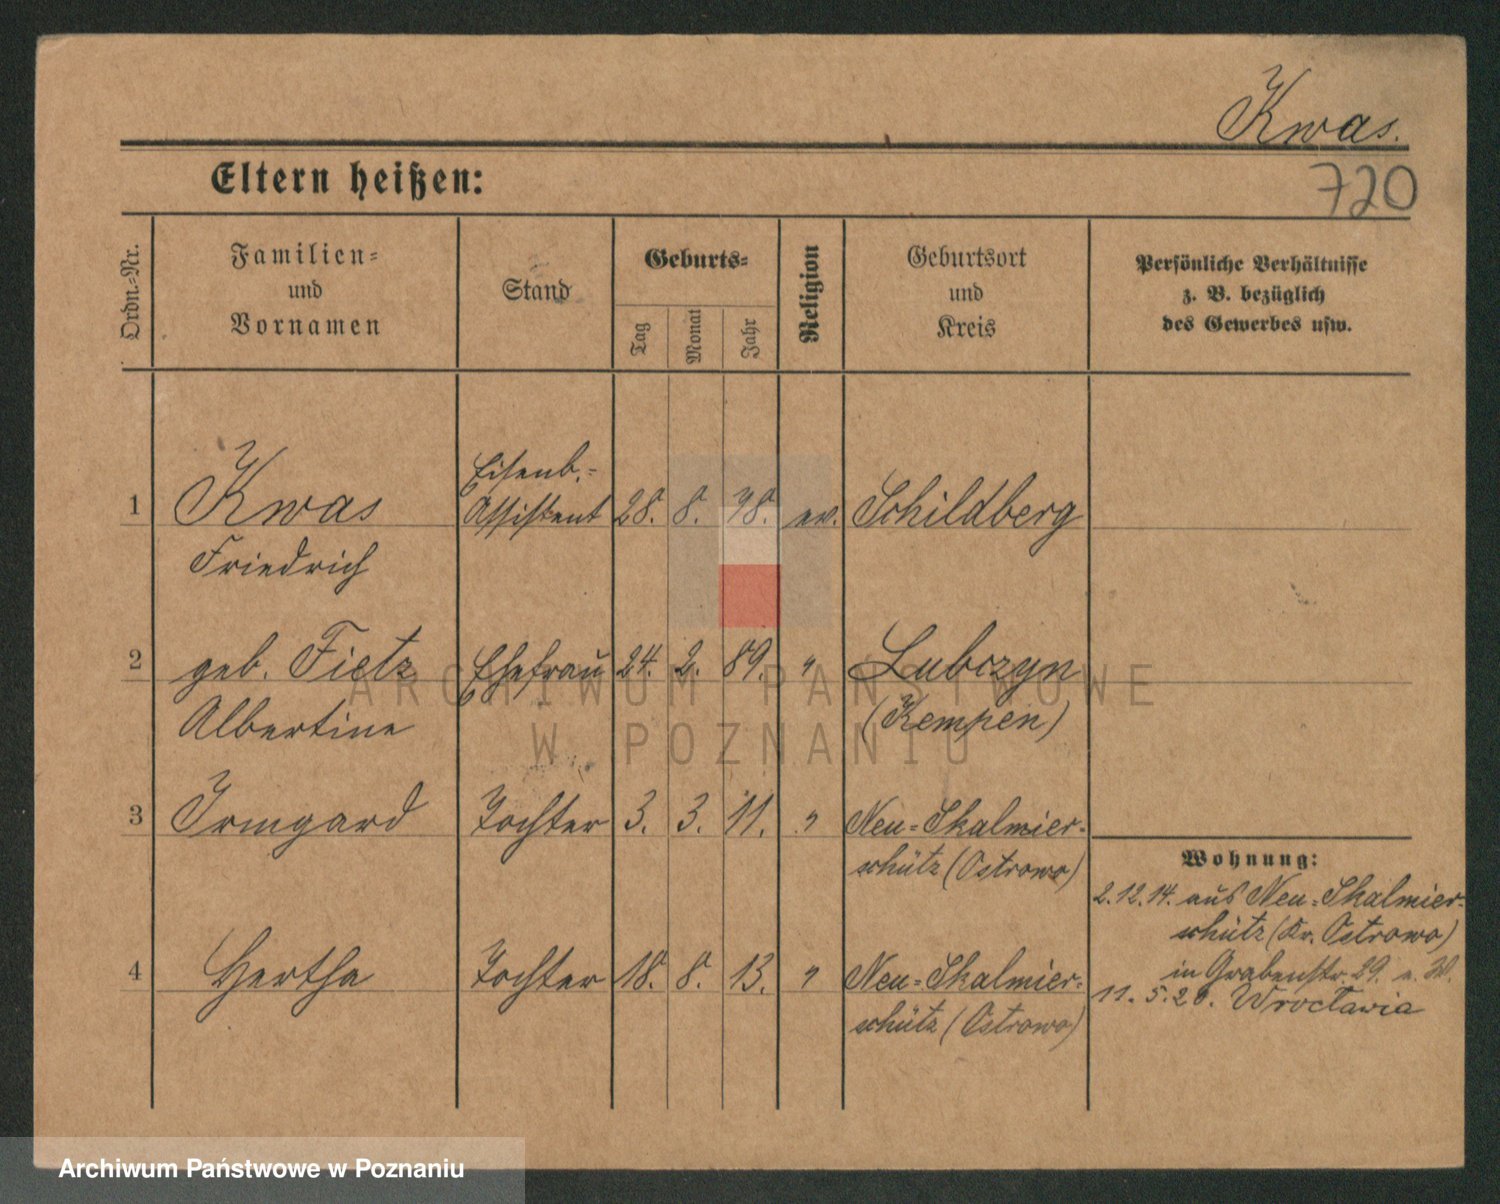 Kwas.
720
Eltern heißen:
Ordn.-Nr.
Familien-
und
Vornamen
Stand
Geburts-
Tag
Monat
Jahr
Religion
Geburtsort
und
Kreis
Persönliche Verhältnisse
z. B. bezüglich
des Gewerbes usw.
1 Kwas
Friedrich
Eisenb.-
Assistent
28. 8. 78. ev.
Schildberg
2 geb. Fietz
Albertine
Ehefrau
24. 2. 89. "
Lubczyn
(Kempen)
3 Irmgard
Tochter
3. 3. 11. "
Neu-Skalmier-
schütz (Ostrowo)
4 Hertha
Tochter
18. 8. 13. "
Neu-Skalmier-
schütz (Ostrowo)
Wohnung:
2.12.14. aus Neu-Skalmier-
schütz (Kr. Ostrowo)
in Grabenstr. 29.
11. 5. 20. Wrocławia
ARCHIWUM PAŃSTWOWE
W POZNANIU
Archiwum Państwowe w Poznaniu